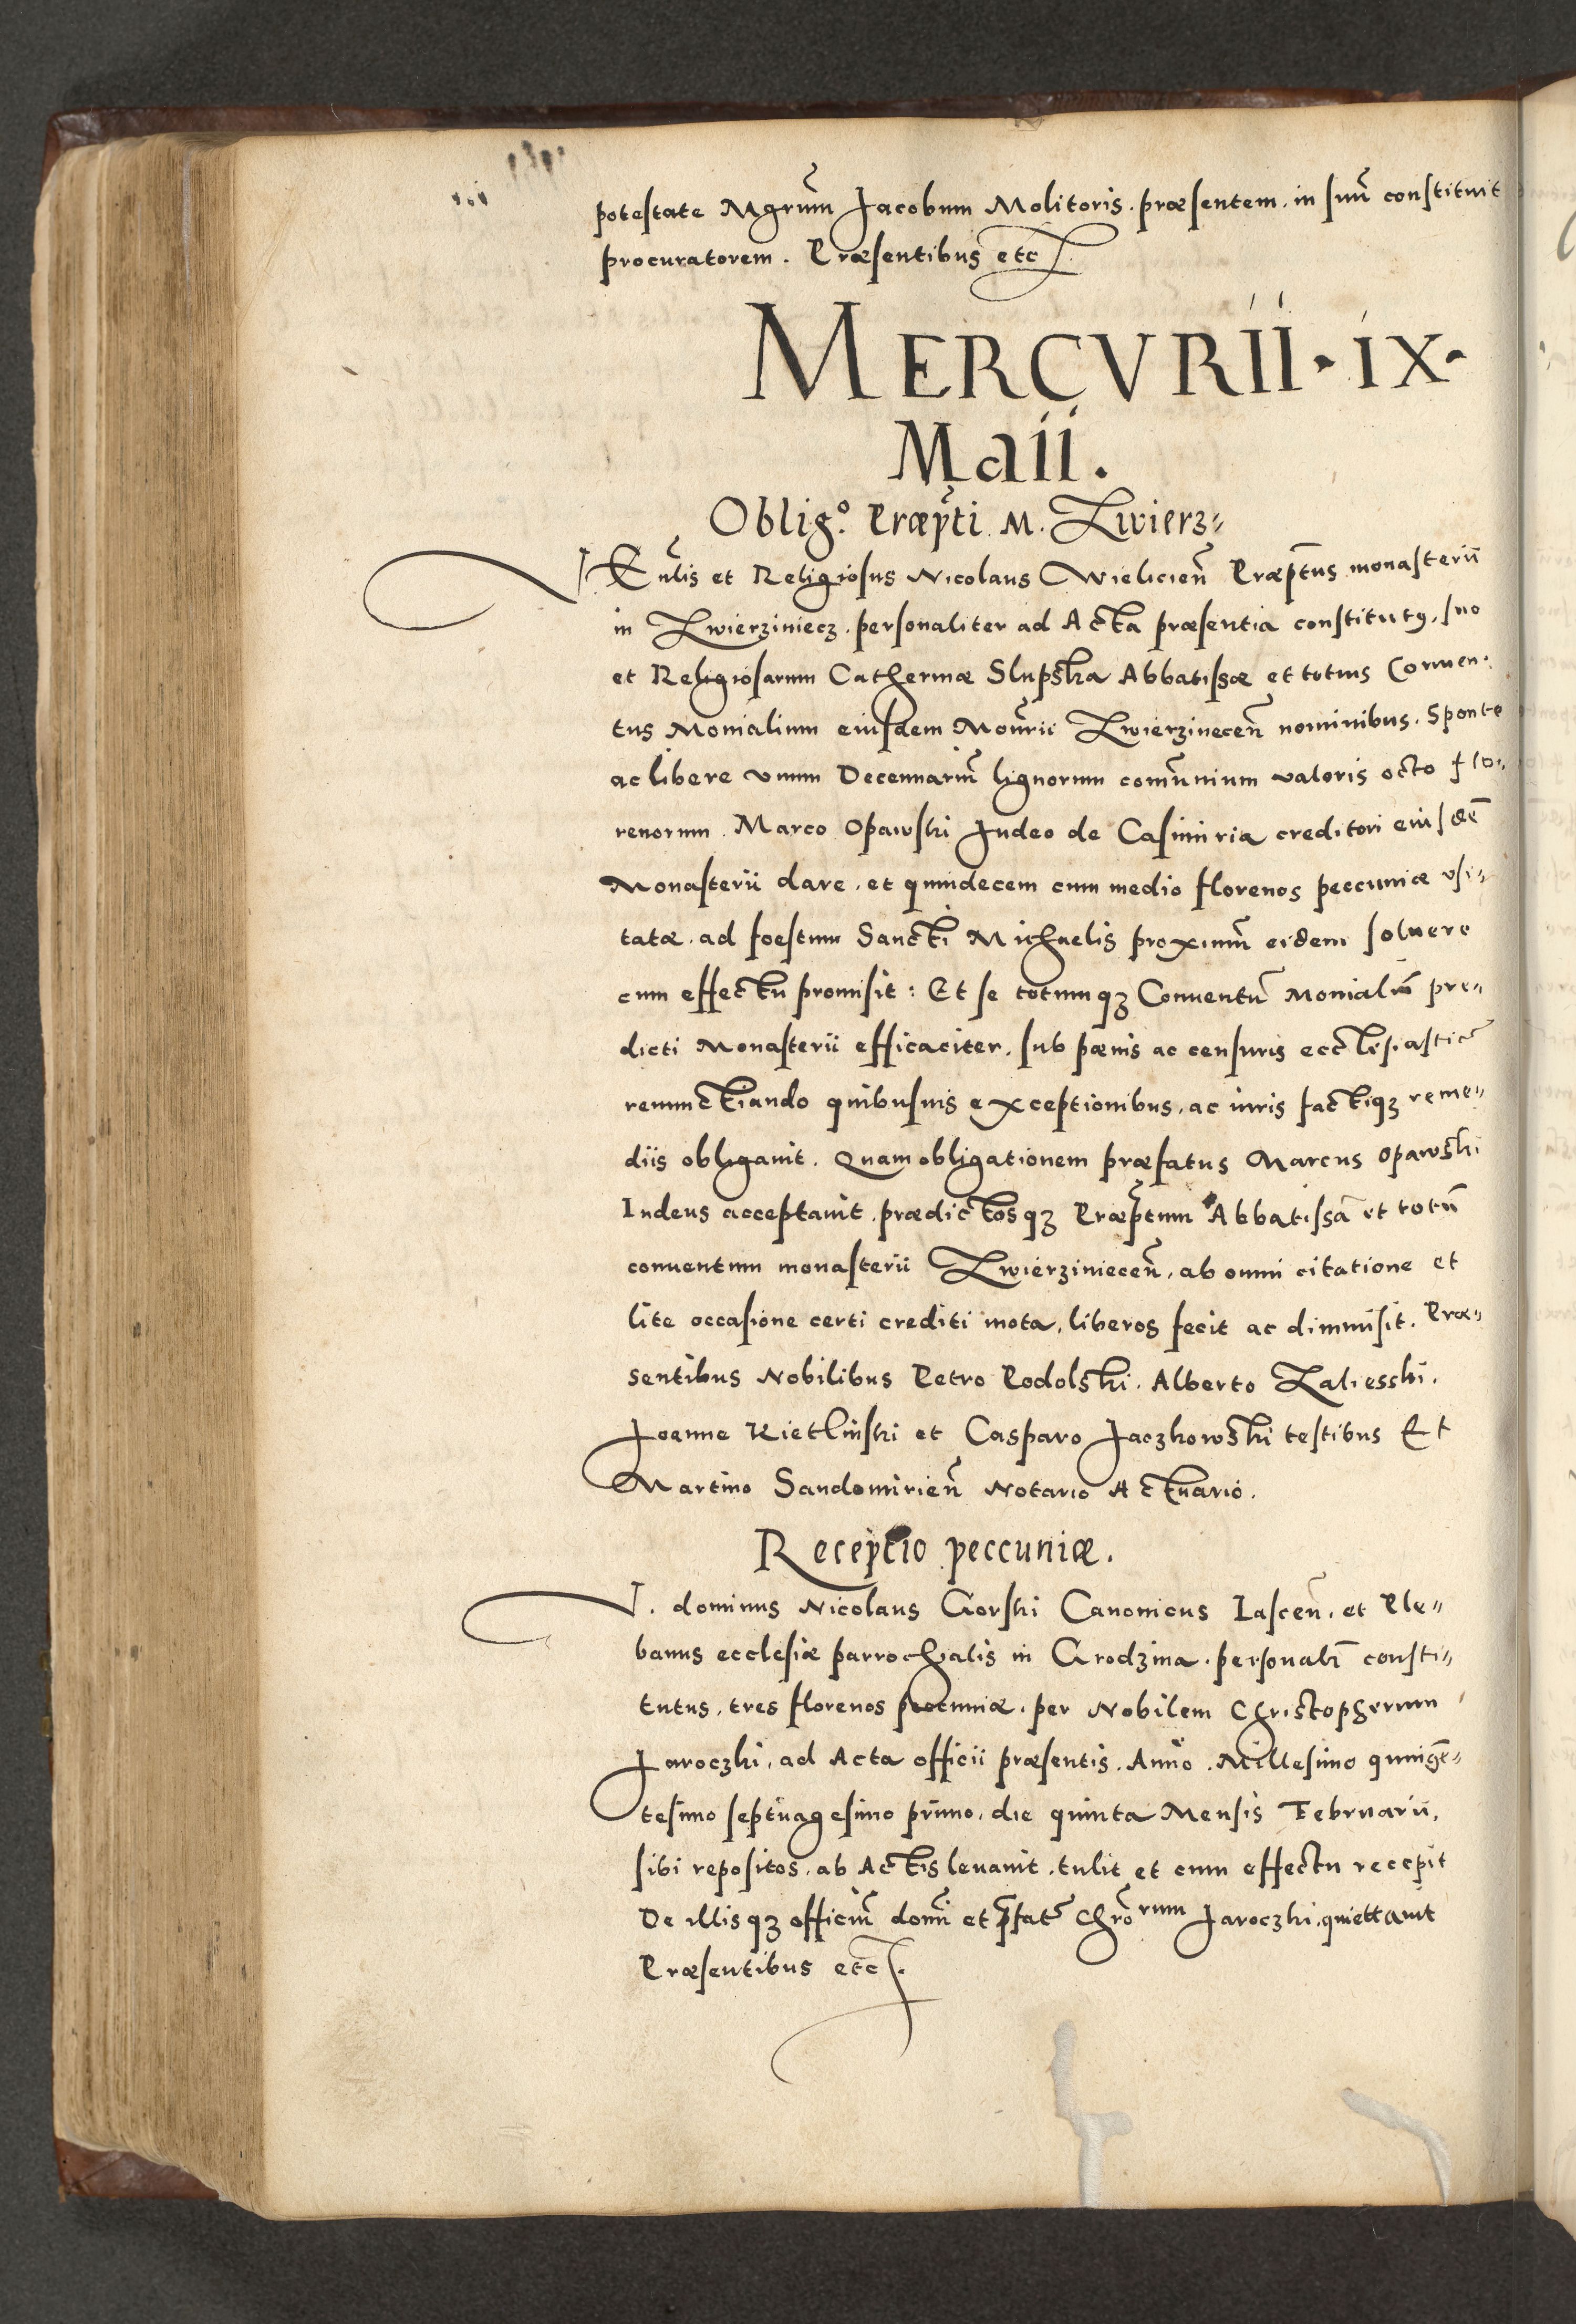 potestate Mgrūm Jacobum Molitoris. præsentem. in suū constituit
procuratorem. Præsentibus etc
MERCVRII · IX ·
Maii.
Obligº. Præpti M. Zwierz=
Vēnlis et Religiosus Nicolaus Wielicień Præptus monasterii
in Zwierziniecz. personaliter ad Acta præsentia constitutꝰ, suo
et Religiosarum Catherinæ Slupska Abbatissæ et totius Conuen-
tus Monialium eiusdem Monrii Zwierzineceñ nominibus. Sponte
ac libere vnum Decennariū lignorum com̄unium valoris octo flo-
renorum. Marco Opawski Judeo de Casimiria creditori eiusdē
Monasterii dare. et quindecem cum medio florenos peccuniæ vsi=
tatæ. ad foestum Sancti Michaelis proximū eidem soluere
cum effectu promisit: Et se totumqꝫ Conuentū Monialiū pre=
dicti Monasterii efficaciter. sub pænis ac censuris ecclesiasticˀ
renunctiando quibusuis exceptionibus. ac iuris factiqꝫ reme=
diis obligauit. Quam obligationem præfatus Marcus Opawski
Iudeus acceptauit. prædictosqꝫ Præptum Abbatissā et totū
conuentum monasterii Zwierzinieceñ, ab omni citatione et
lite occasione certi crediti mota, liberos fecit ac dimmisit. Præ=
sentibus Nobilibus Petro Podolski. Alberto Zaliesski.
Joanne Kietlinski et Casparo Jaczkowski testibus Et
Martino Sandomirieñ Notario Actuario.
Receptio peccuniæ.
V. dominus Nicolaus Gorski Canonicus Lasceñ. et Ple=
banus ecclesiæ parrochialis in Grodzina. personalr̄ consti=
tutus, tres florenos pecuniæ. per Nobilem Christopherum
Jaroczki, ad Acta officii præsentis. Anno. Millesimo quingē=
tesimo septuagesimo primo. die quinta Mensis Februarii,
sibi repositos. ab Actis leuauit. tulit et cum effectu recepit
De illisqꝫ officiū domi et p̄fatˀ Chrōrum Jaroczki, quiettauit
Præsentibus etc.